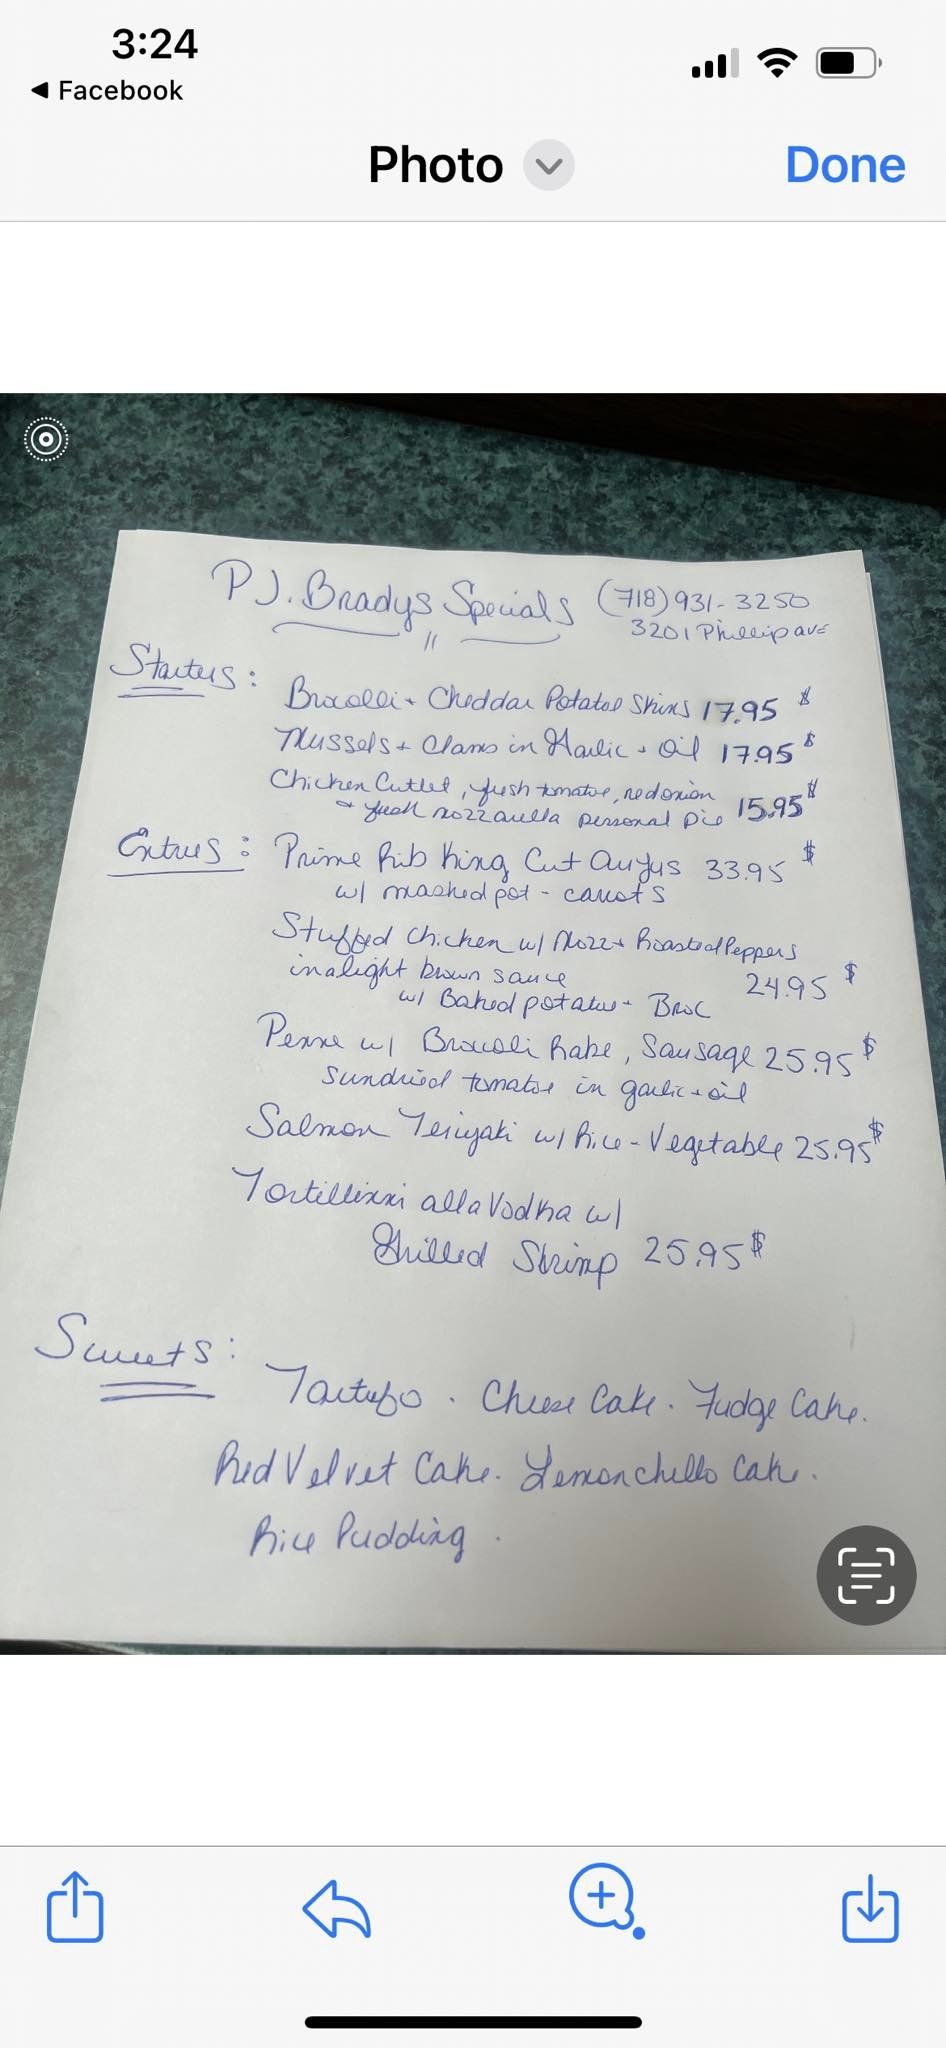 3:24
Facebook
Photo
Done
P.J. Bradys Specials (718) 931-3250
3201 Phillip ave
Starters:
Brocolli + Cheddar Potatoe Skins 17.95 $
Mussels + Clams in Garlic + Oil 17.95 $
Chicken Cutlet, fresh tomatoe, red onion
+ fresh mozzarella personal pie 15.95 $
Entrees: Prime Rib King Cut Angus 33.95 $
w/ mashed pot - carrots
Stuffed Chicken w/ Mozz + Roasted Peppers
in a light brown sauce 24.95 $
w/ Baked potatoe + Broc
Penne w/ Brocoli Rabe, Sausage 25.95 $
Sundried tomatoe in garlic + oil
Salmon Teriyaki w/ Rice - Vegetable 25.95 $
Tortillinni alla Vodka w/
Grilled Shrimp 25.95 $
Sweets:
Tartufo . Cheese Cake . Fudge Cake.
Red Velvet Cake . Lemonchello Cake .
Rice Pudding .